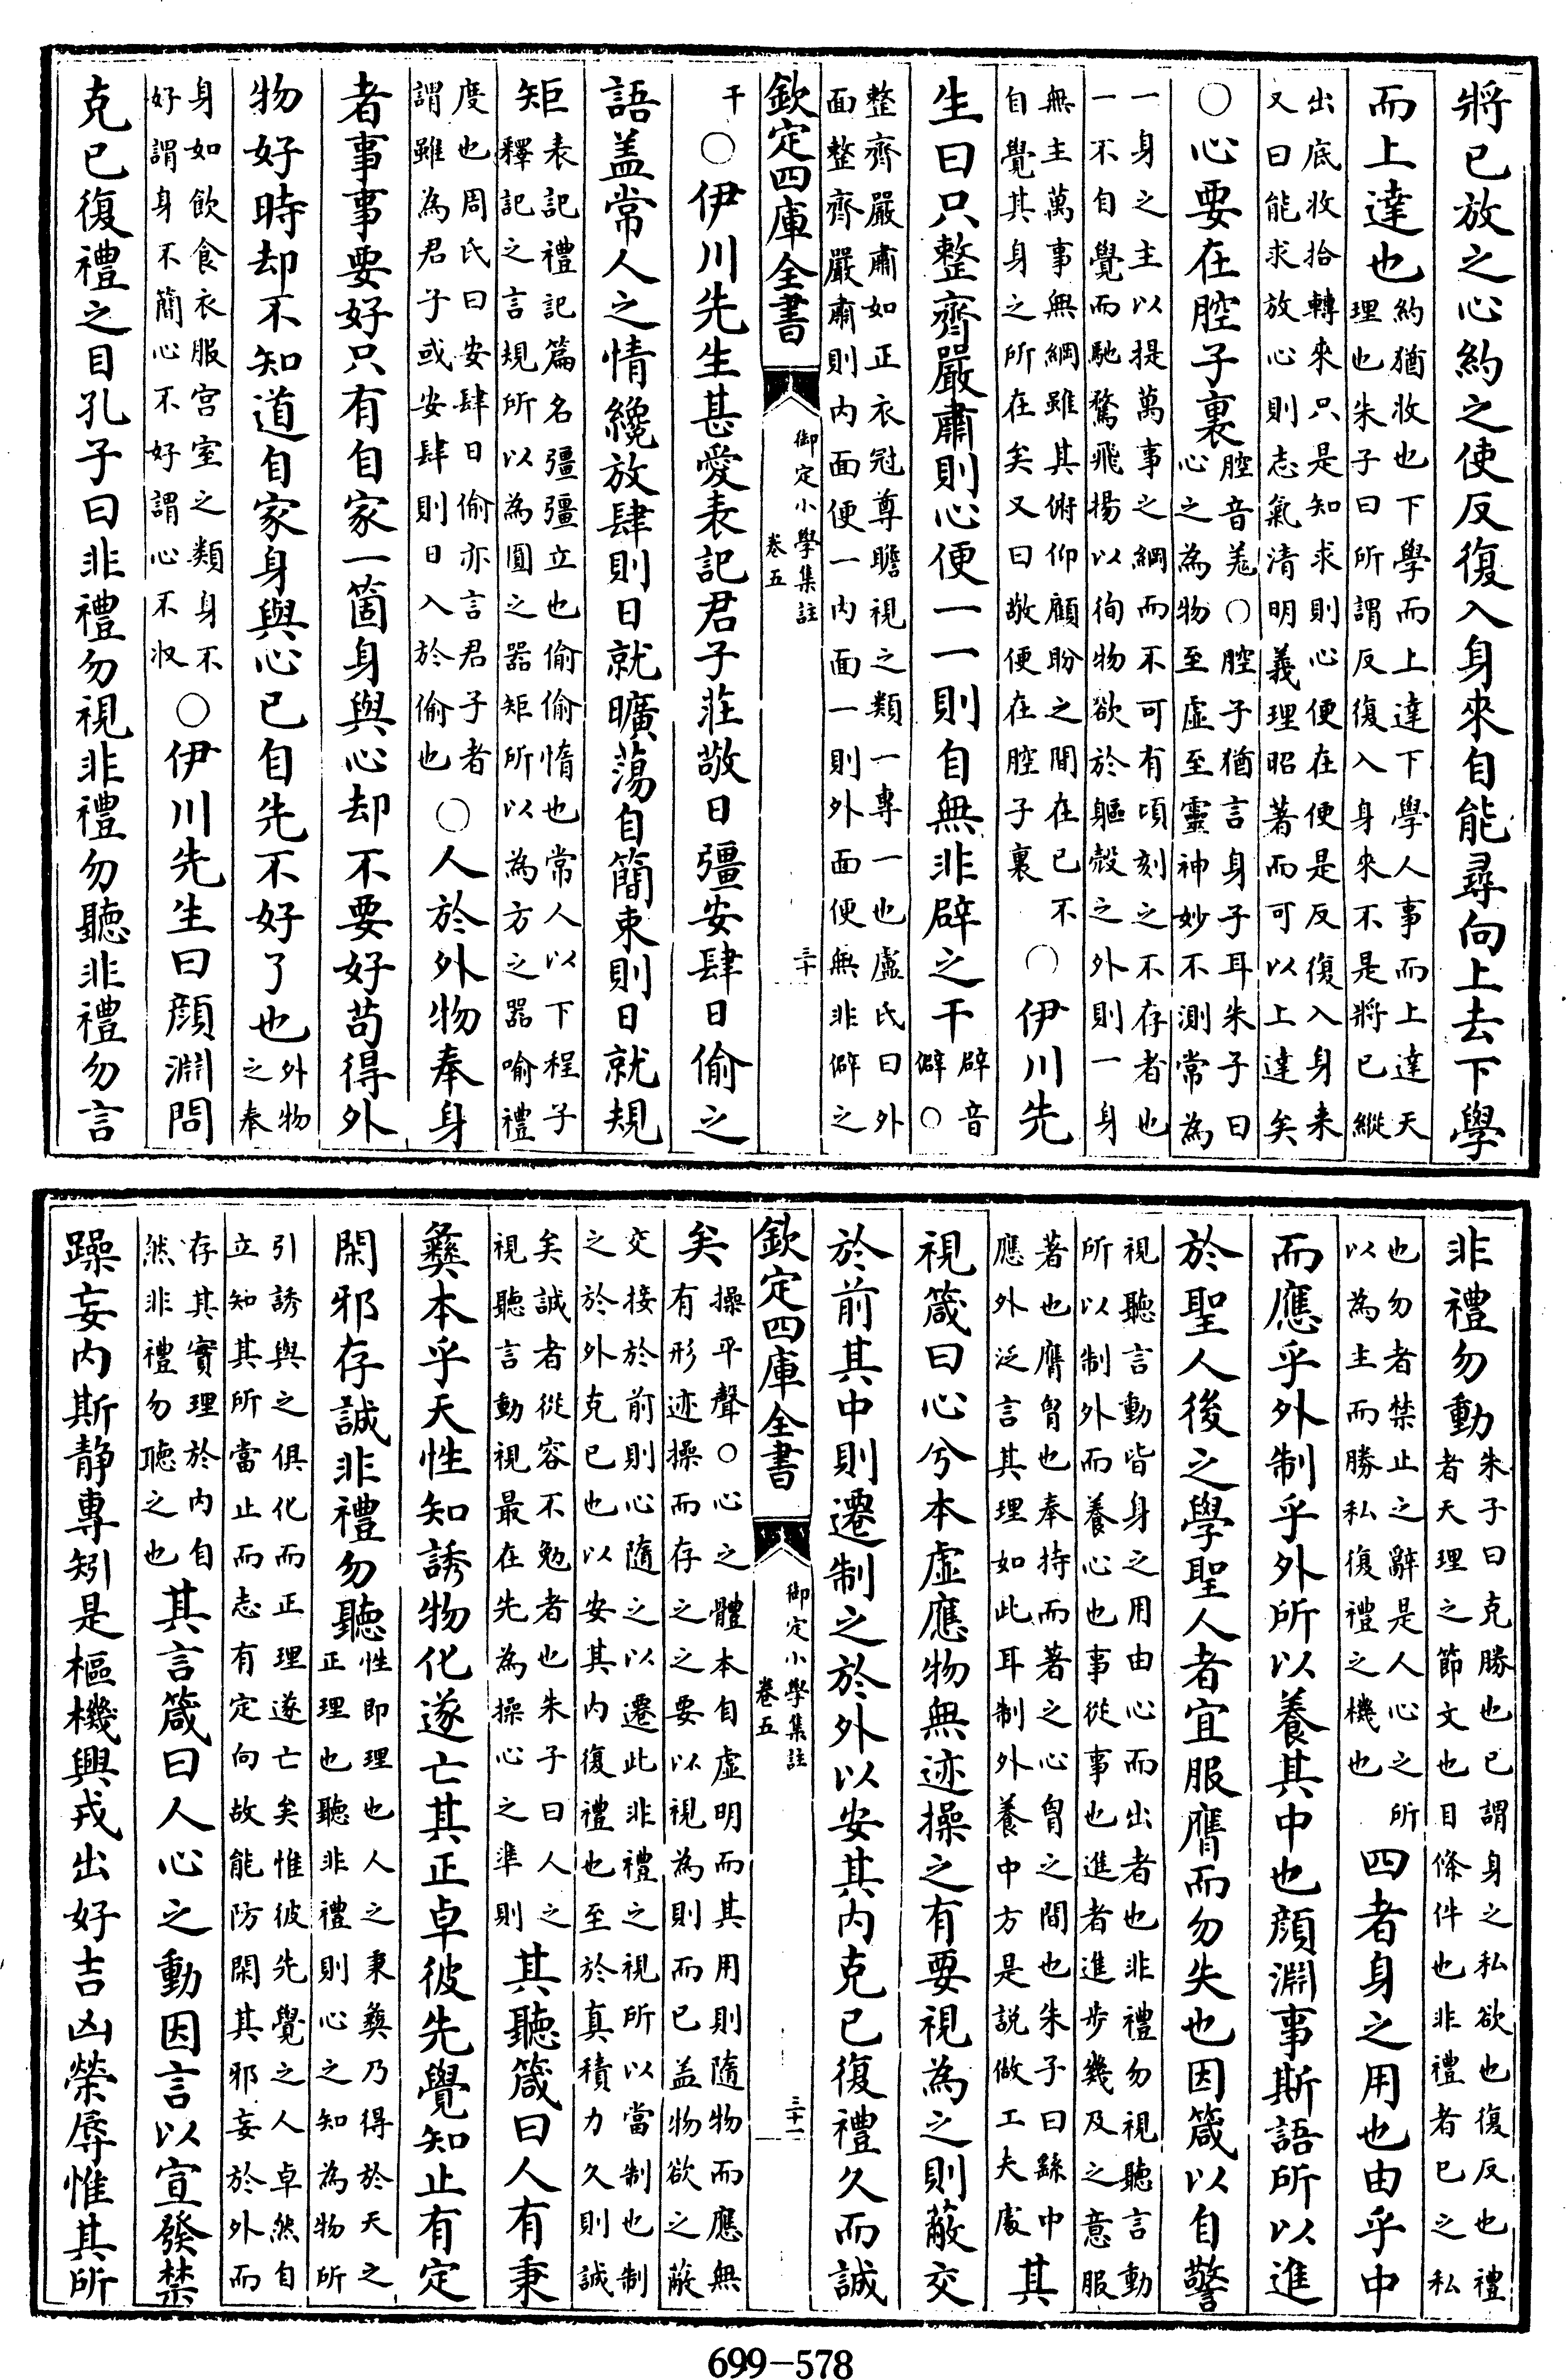 將已放之心約之使反復入身來自能尋向上去下學
而上達也約猶收也下學而上達下學人事而上達天
理也朱子曰所謂反復入身來不是將已縱
出底收拾轉來只是知求則心便在便是反復入身来
又曰能求放心則志氣清明義理昭著而可以上達矣
〇心要在腔子裏腔音羗〇腔子猶言身子耳朱子曰
心之為物至虛至靈神妙不測常為
一身之主以提萬事之綱而不可有頃刻之不存者也
一不自覺而馳騖飛揚以徇物欲於軀殻之外則一身
無主萬事無綱雖其俯仰顧盼之間在已不
自覺其身之所在矣又曰敬便在腔子裏〇伊川先
生曰只整齊嚴肅則心便一一則自無非辟之干辟音
僻〇
整齊嚴肅如正衣冠尊瞻視之類一專一也盧氏曰外
面整齊嚴肅則内面便一内面一則外面便無非僻之
欽定四庫全書
御定小學集註
卷五
三十
干〇伊川先生甚愛表記君子莊敬日彊安肆日偷之
語盖常人之情纔放肆則日就曠蕩自簡束則日就規
矩表記禮記篇名彊彊立也偷偷惰也常人以下程子
釋記之言規所以為圓之器矩所以為方之器喻禮
度也周氏曰安肆日偷亦言君子者
謂雖為君子或安肆則日入於偷也〇人於外物奉身
者事事要好只有自家一箇身與心却不要好苟得外
物好時却不知道自家身與心已自先不好了也外物
之奉
身如飲食衣服宫室之類身不
好謂身不簡心不好謂心不収〇伊川先生曰顔淵問
克已復禮之目孔子曰非禮勿視非禮勿聽非禮勿言
非禮勿動朱子曰克勝也已謂身之私欲也復反也禮
者天理之節文也目條件也非禮者已之私
也勿者禁止之辭是人心之所
以為主而勝私復禮之機也四者身之用也由乎中
而應乎外制乎外所以養其中也顔淵事斯語所以進
於聖人後之學聖人者宜服膺而勿失也因箴以自警
視聽言動皆身之用由心而出者也非禮勿視聽言動
所以制外而養心也事從事也進者進步幾及之意服
著也膺胷也奉持而著之心胷之間也朱子曰繇中
應外泛言其理如此耳制外養中方是説做工夫處其
視箴曰心兮本虛應物無迹操之有要視為之則蔽交
於前其中則遷制之於外以安其内克已復禮久而誠
欽定四庫全書
御定小學集註
卷五
三十一
矣操平聲〇心之體本自虛明而其用則隨物而應無
有形迹操而存之之要以視為則而已盖物欲之蔽
交接於前則心隨之以遷此非禮之視所以當制也制
之於外克已也以安其内復禮也至於真積力久則誠
矣誠者從容不勉者也朱子曰人之
視聽言動視最在先為操心之準則其聽箴曰人有秉
彝本乎天性知誘物化遂亡其正卓彼先覺知止有定
閑邪存誠非禮勿聽性即理也人之秉彝乃得於天之
正理也聽非禮則心之知為物所
引誘與之俱化而正理遂亡矣惟彼先覺之人卓然自
立知其所當止而志有定向故能防閑其邪妄於外而
存其實理於内自
然非禮勿聽之也其言箴曰人心之動因言以宣發禁
躁妄内斯静專矧是樞機興戎出好吉凶榮辱惟其所
699-578